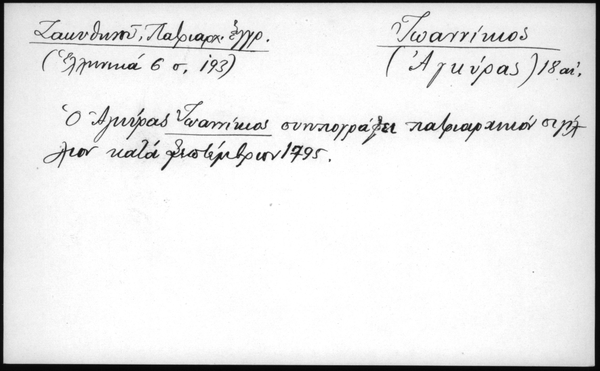 Ζακυθηνοῦ, Πατριαρχ. ἔγγρ.
(Ἑλληνικά 6 σ. 193)
Ἰωαννίκιος
(Ἀγκύρας) 18 αἰ.
Ὁ Ἀγκύρας Ἰωαννίκιος συνυπογράφει πατριαρχικόν σιγίλ
λιον κατά Σεπτέμβριον 1795.